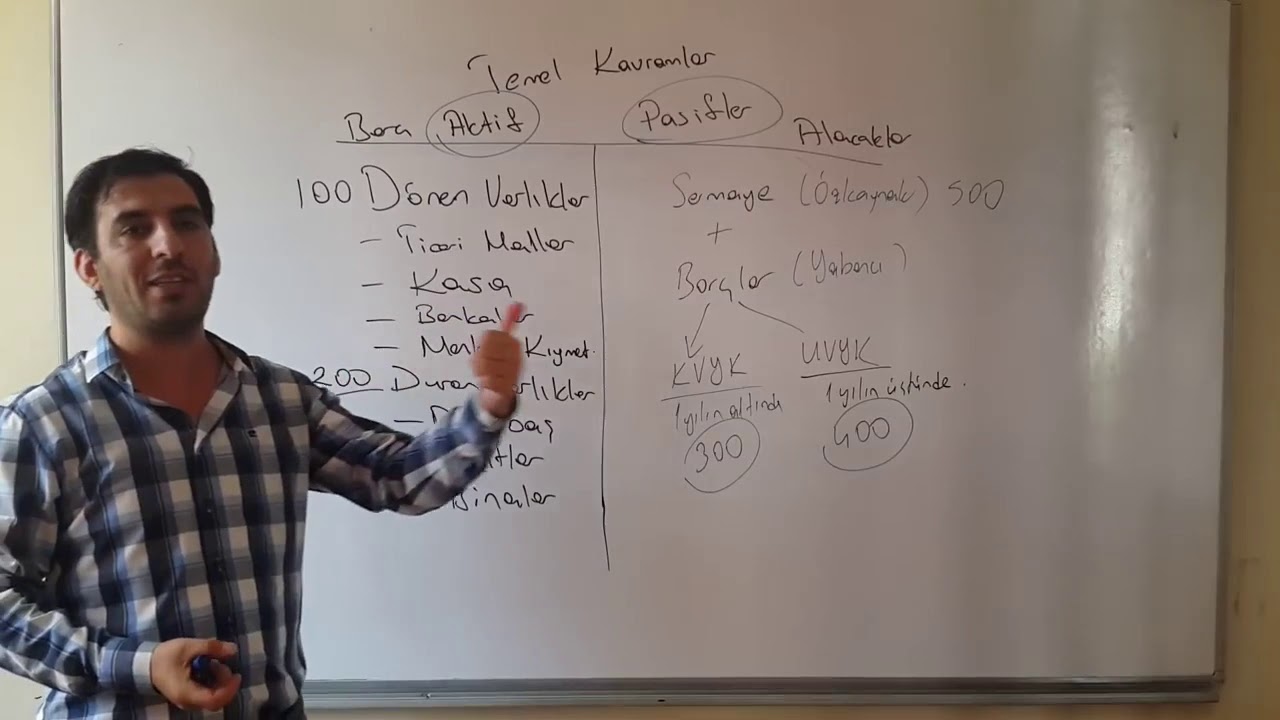 Temel Kavramlar
Borç Aktif
Pasifler Alacaklar
100 Dönen Varlıklar
- Ticari Mallar
- Kasa
- Bankalar
- Kıymet.
200 Duran Varlıklar
- 
Binalar
Sermaye (Özkaynak) 500
+
Borçlar (Yabancı)
KVYK
1 yılın altında
300
UVYK
1 yılın üstünde.
400